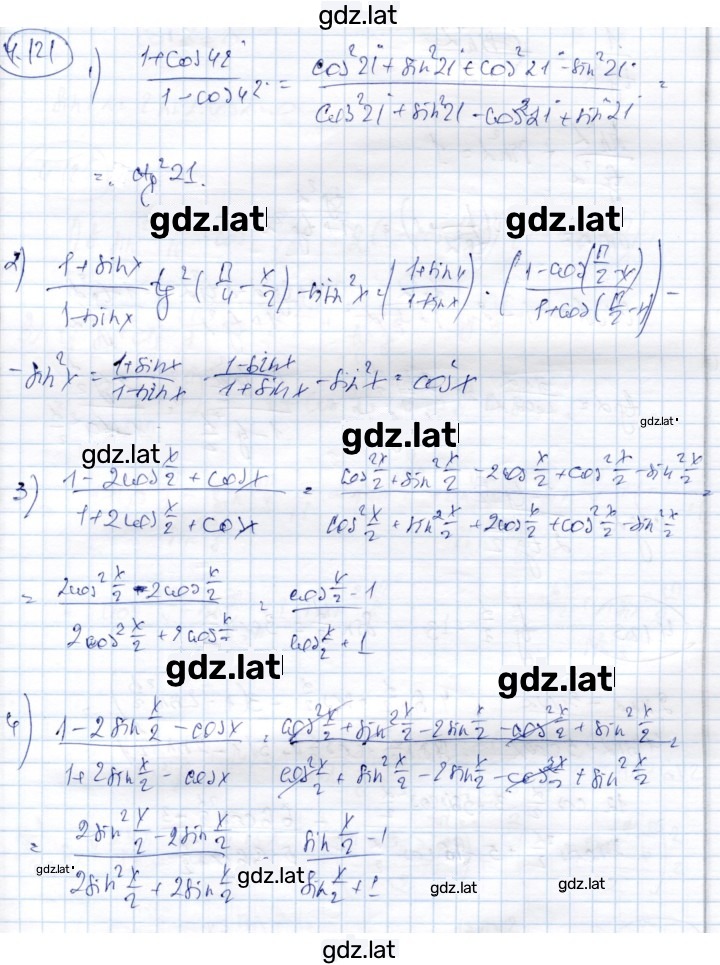 gdz.lat
4.121
1) (1+cos42°)/(1-cos42°) = (cos²21°+sin²21°+cos²21°-sin²21°)/(cos²21°+sin²21-cos²21°+sin²21°) =
= ctg²21.
gdz.lat gdz.lat
2) (1+sinx)/(1-sinx) tg²(π/4 - x/2) - sin²x = ((1+sinx)/(1-sinx)) · ((1-cos(π/2-x))/(1+cos(π/2-x))) -
- sin²x = (1+sinx)/(1-sinx) (1-sinx)/(1+sinx) - sin²x = cos²x
gdz.lat gdz.lat gdz.lat
3) (1-2cos x/2 + cosx)/(1+2cos x/2 + cosx) = (cos² x/2 + sin² x/2 - 2cos x/2 + cos² x/2 - sin² x/2)/(cos² x/2 + sin² x/2 + 2cos x/2 + cos² x/2 - sin² x/2) =
= (2cos² x/2 - 2cos x/2)/(2cos² x/2 + 2cos x/2) = (cos x/2 - 1)/(cos x/2 + 1)
gdz.lat gdz.lat
4) (1-2sin x/2 - cosx)/(1+2sin x/2 - cosx) = (cos² x/2 + sin² x/2 - 2sin x/2 - cos² x/2 + sin² x/2)/(cos² x/2 + sin² x/2 - 2sin x/2 - cos² x/2 + sin² x/2) =
= (2sin² x/2 - 2sin x/2)/(2sin² x/2 + 2sin x/2) (sin x/2 - 1)/(sin x/2 + 1)
gdz.lat gdz.lat gdz.lat gdz.lat
gdz.lat